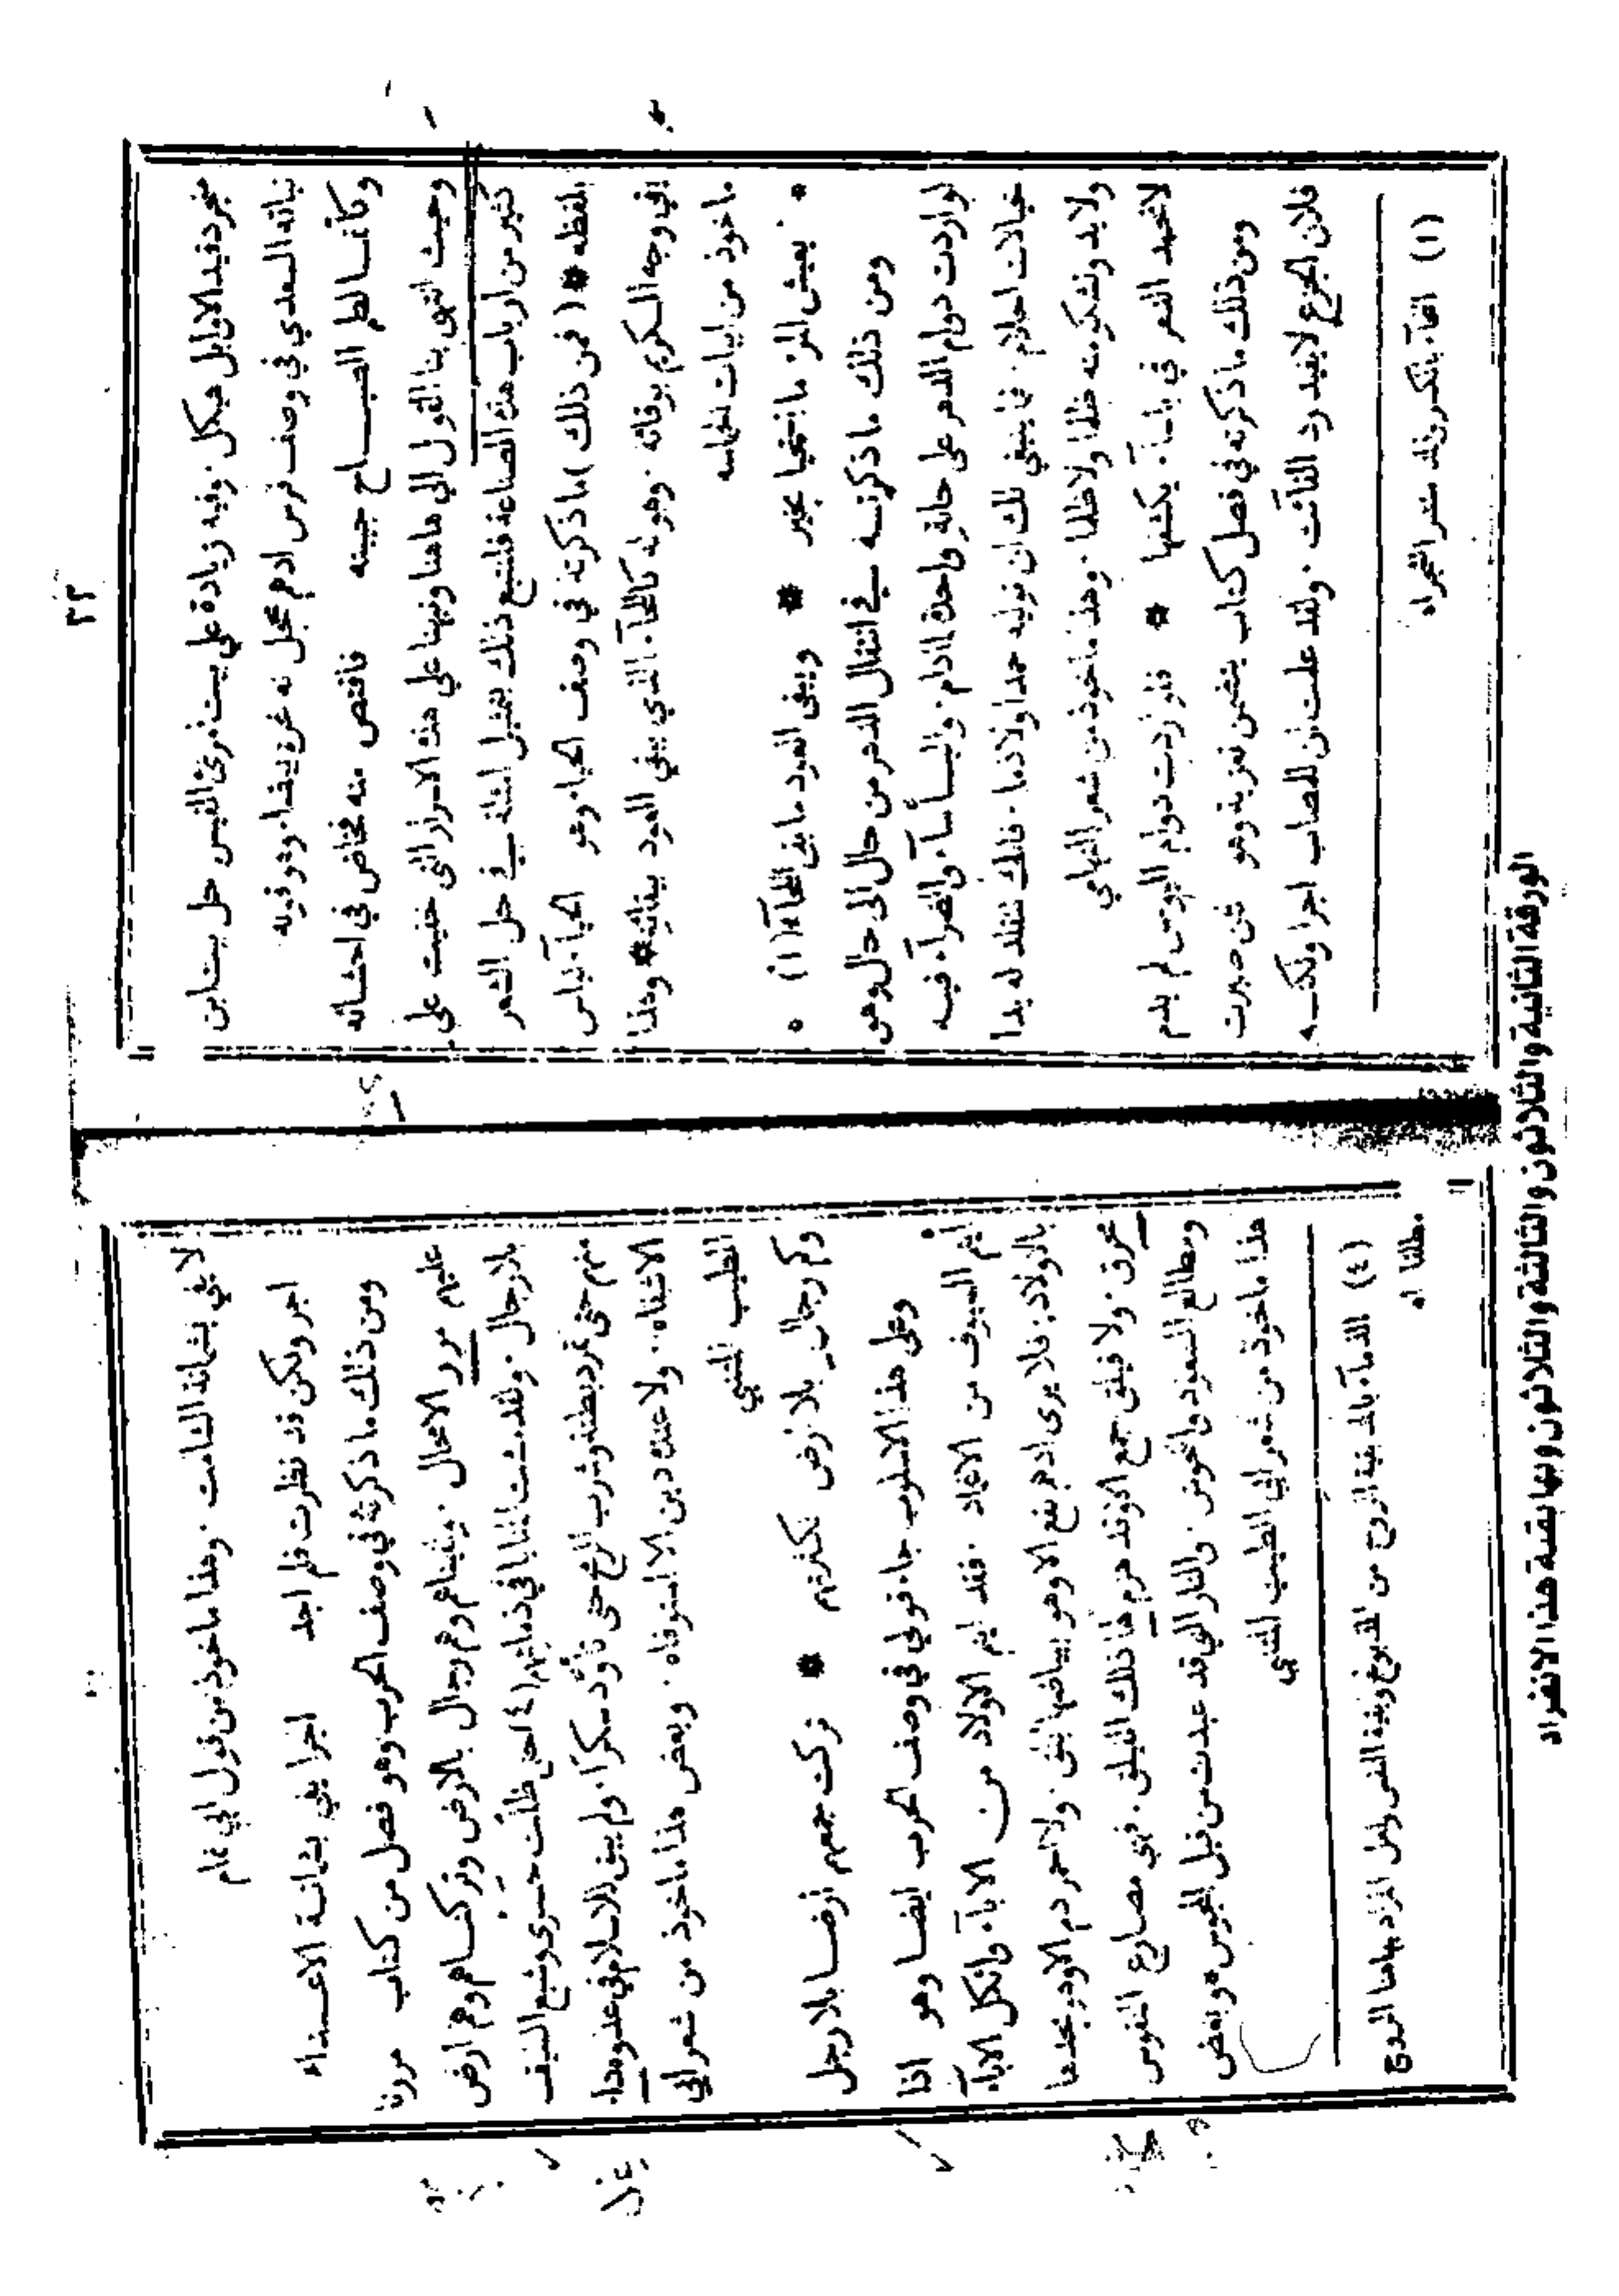 ٣٢
بنجر دقيد الاوابد هيكل . وفيه زيادة على بيت امرئ القيس حل بيت ابن
نباته السعدي في وصف فرس ادهم محجل له غرة بيضاء وهو قوله
وكأنما لطم الصباح جبينه فاقتص منه فخاض في احشائه
وحيث انتهى بنا القول الى هاهنا ونبهنا على هذه الاسرار التي خفيت على
كثير من ارباب هذه الصناعة فلنتبع ذلك بتمثيل امثلة في حل الشعر
بلفظه * ( فمن ذلك ) ما ذكرته في وصف الحياء وهو الحياء لباس
يقي وجه الكريم بوقائه . وهو له كاللحاء الذي يبقي العود ببقائه * وهذا
ماخوذ من ابيات الحماسه
يعيش المرء ما استحيا بخير * ويبقى العود ما بقي اللحاء (١)
ومن ذلك ما ذكرته في انتقال الدهر من حال الى حال وهو
لو اردت دوام الدهر على حالة واحدة لما دام . والبأساء والضراء فيه
خيالات احلام . فما ينبغي لك ان توليه حمدا ولا ذما . فانك تتقلد له يدا
ولا يد وتشكو منه ظلما ولا ظلما . وهذا ماخوذ من شعر التهامي
لا تحمد الدهر في باساء يكشفها * فلو اردت دوام البوس لم يدم
ومن ذلك ما ذكرته في فصل كتاب يتضمن تعزية وهو لئن صبرت
فلان الجزع لا يفيد رد الفائت . ولقد علمت ان للمصاب اجرا ولكنه
(١) اللحآء بالكسر والمد قشر الشجر اه
لا يفي بشماتة الشامت . وهذا ماخوذ من قول ابي تمام
اجر ولكن قد نظرت فلم اجد اجرا يفي بشماتة الاعداء
ومن ذلك ما ذكرته في وصف الحرب وهو فصل من كتاب مررنا
عليهم مرور الاحمال . ولقيناهم وهم رجال بالارض وتركناهم وهم ارض
بلا رجال . ولقد عدت المنايا في ذمائهم (٤) حتى ظلت حسرى وشبع السيف
منهم حتى غرد بطنه وشرب الرمح حتى تأود سكرا . ولم يبق للاسلام في عدوهم داء
الا شفاه . ولا عنده دين الا استوفاه . وبعض هذا ماخوذ من شعر ابي
الطيب المتنبي
وكم رجال بلا ارض لكثرتهم * تركت جمعهم ارضا بلا رجل
وعلى هذا الاسلوب جاء قولي في وصف الحرب ايضا وهو اذا
ايتم السيوف من الاغماد . فقد ايتم الاولاد من الاباء واثكل الاباء
بالاولاد فلا يرى ادهم نقع الا وهو ببياضها ابلق . ولا احمر دم الا وهو بحدها
مهرق . ولا فيلق جمع الا وقد هزم بها ذلك الفيلق . فهي مصارع النفوس
ومطالع السعود والنحوس . والنار التي قد عبدت من قبل المجوس * وبعض
هذا ماخوذ من شعر ابي الطيب المتنبي
(٤) الذمآء بالمد بقية الروح من المذبوح وبقية النفس ولعل المراد بها هنا الروح
مطلقا اه
الورقة الثانية والثالثة والثلاثون والثلاثون وبها بقية هذا الانفراد